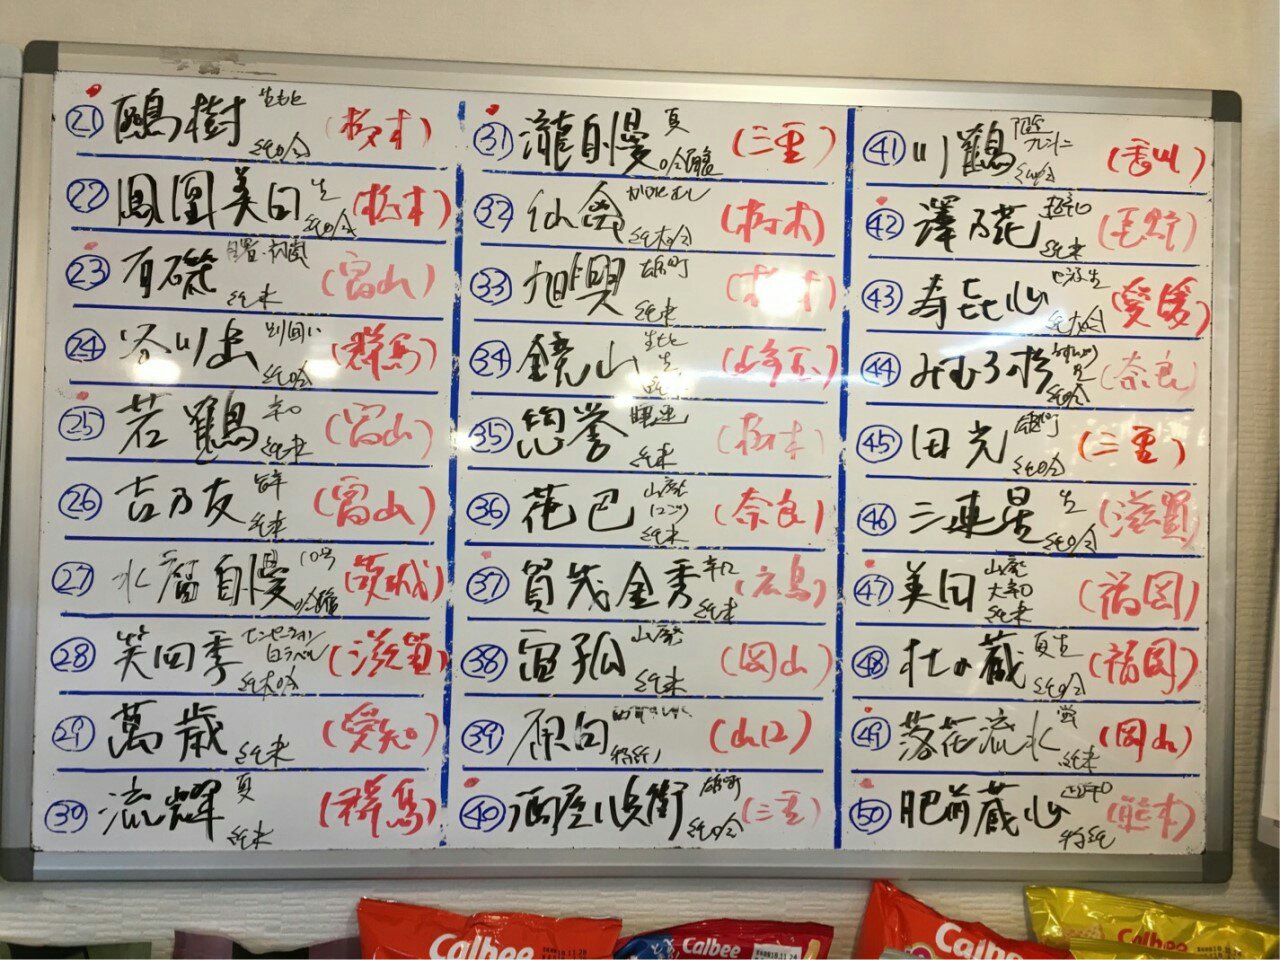 ㉑ 鷗樹 生もと 純吟 (栃木)
㉒ 鳳凰美田 生 純吟 (栃木)
㉓ 有磯 純米 (富山)
㉔ 谷川岳 別囲い 純吟 (群馬)
㉕ 若鶴 辛口 純米 (富山)
㉖ 吉乃友 純米 (富山)
㉗ 水府自慢 10号 吟醸 (茨城)
㉘ 笑四季 センセーション 白ラベル 純米吟 (滋賀)
㉙ 萬歳 純米 (愛知)
㉚ 流輝 夏 純米 (群馬)
㉛ 瀧自慢 夏 吟醸 (三重)
㉜ 仙禽 かぶとむし (栃木)
㉝ 旭興 雄町 純米 (栃木)
㉞ 鏡山 生もと 生 (埼玉)
㉟ 惣誉 純米 (栃木)
㊱ 花巴 山廃 純米 (奈良)
㊲ 賀茂金秀 辛口 純米 (広島)
㊳ 山廃 純米 (岡山)
㊴ 原田 特純 (山口)
㊵ 酒屋八兵衛 雄町 純吟 (三重)
㊶ 川鶴 純吟 (香川)
㊷ 純米
㊸ 寿喜心 生 純吟 (愛媛)
㊹ みむろ杉 純吟 (奈良)
㊺ 田光 雄町 純吟 (三重)
㊻ 三連星 生 純吟 (滋賀)
㊼ 美田 山廃 大辛口 純米 (福岡)
㊽ 杜の蔵 夏生 純吟 (福岡)
㊾ 落花流水 蛍 純米 (岡山)
㊿ 肥前蔵心 特純 (熊本)
Calbee
Calbee
Calbee
Calbee